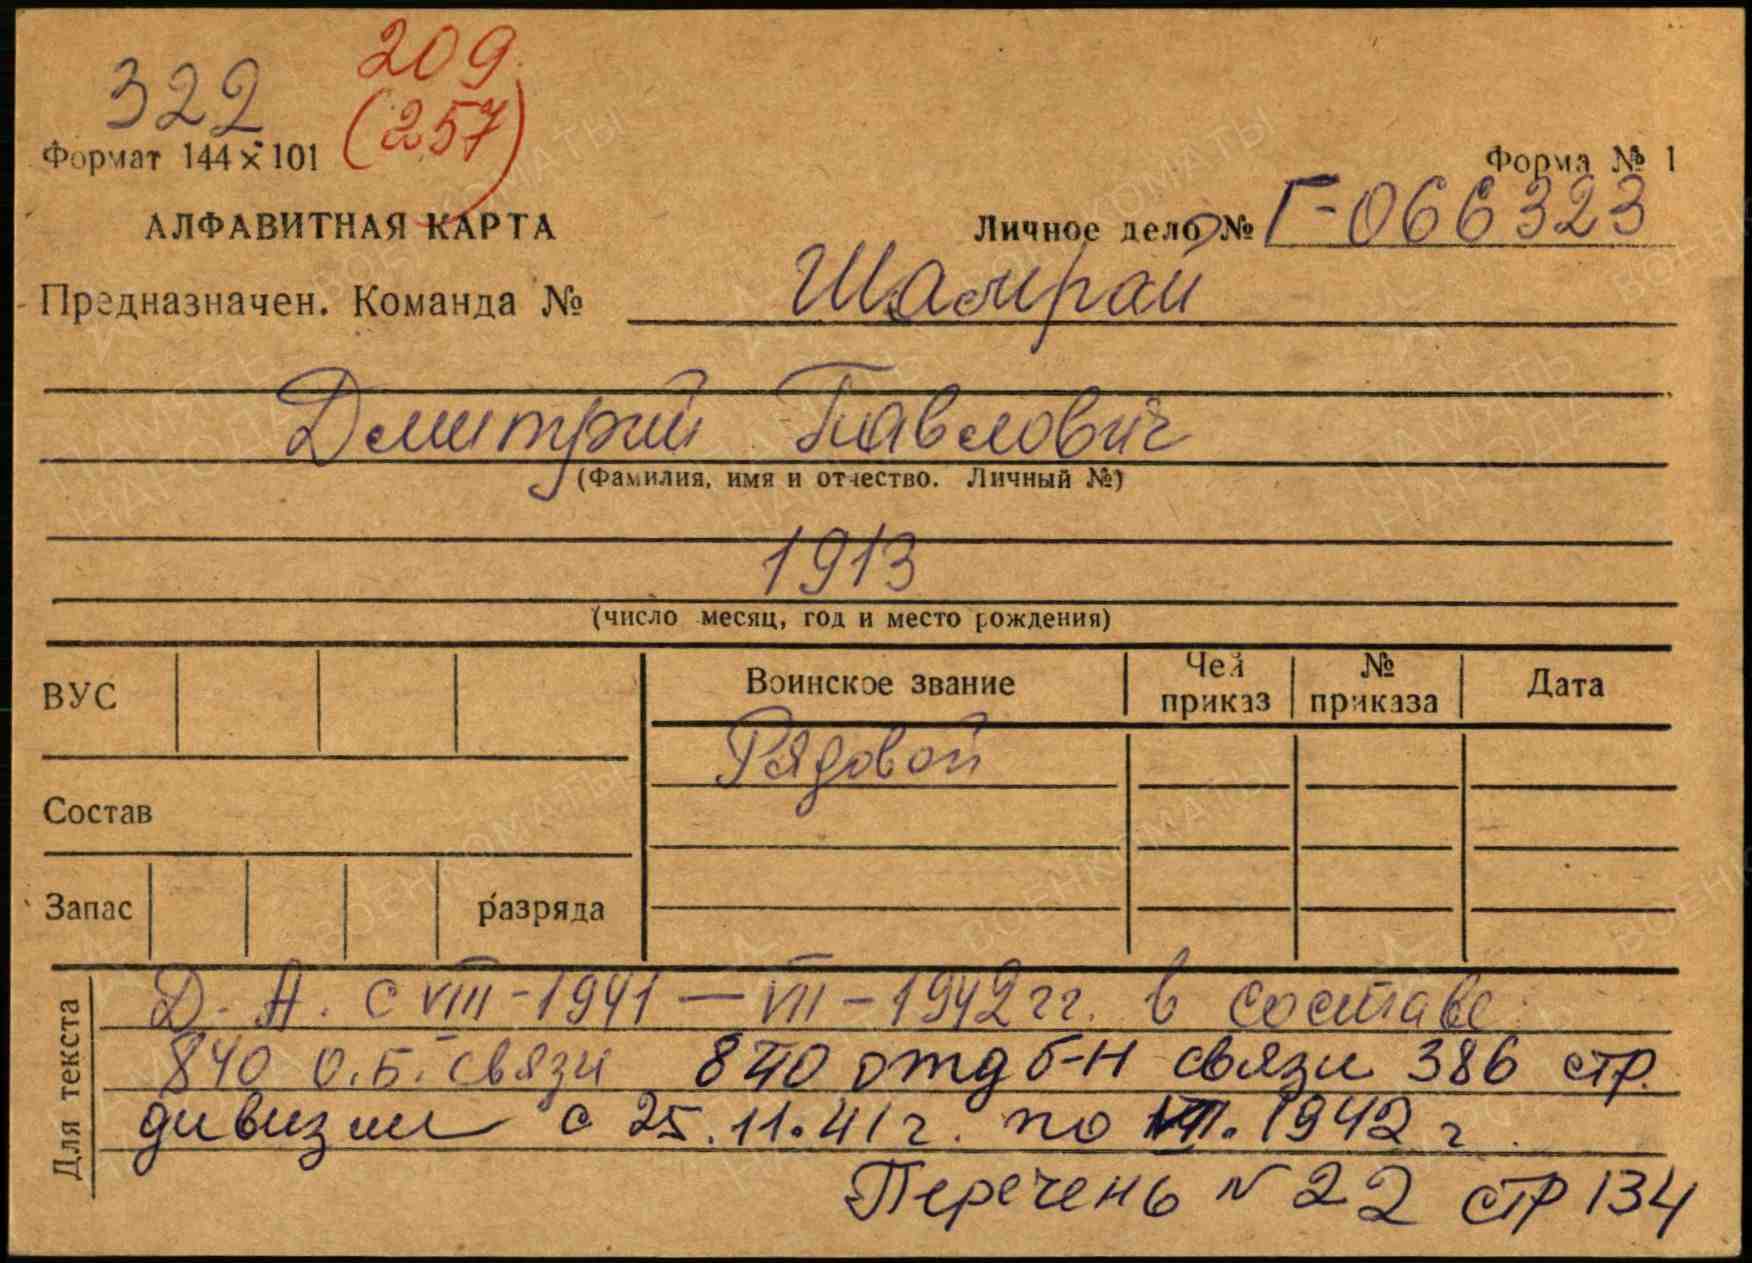 322
209
(257)
Формат 144×101
Форма № 1
АЛФАВИТНАЯ КАРТА
Личное дело № Г-066323
Предназначен. Команда № Шамрай
Дмитрий Павлович
(Фамилия, имя и отчество. Личный №)
1913
(число месяц, год и место рождения)
ВУС
Воинское звание
Чей приказ
№ приказа
Дата
Рядовой
Состав
Запас
разряда
Для текста
Д. А. с VIII-1941 — VII-1942 гг. в составе
840 о.б. связи 840 отд б-н связи 386 стр.
дивизии с 25.11.41 г. по VII.1942 г.
Перечень N 22 стр 134
ПАМЯТЬ НАРОДА
ВОЕНКОМАТЫ